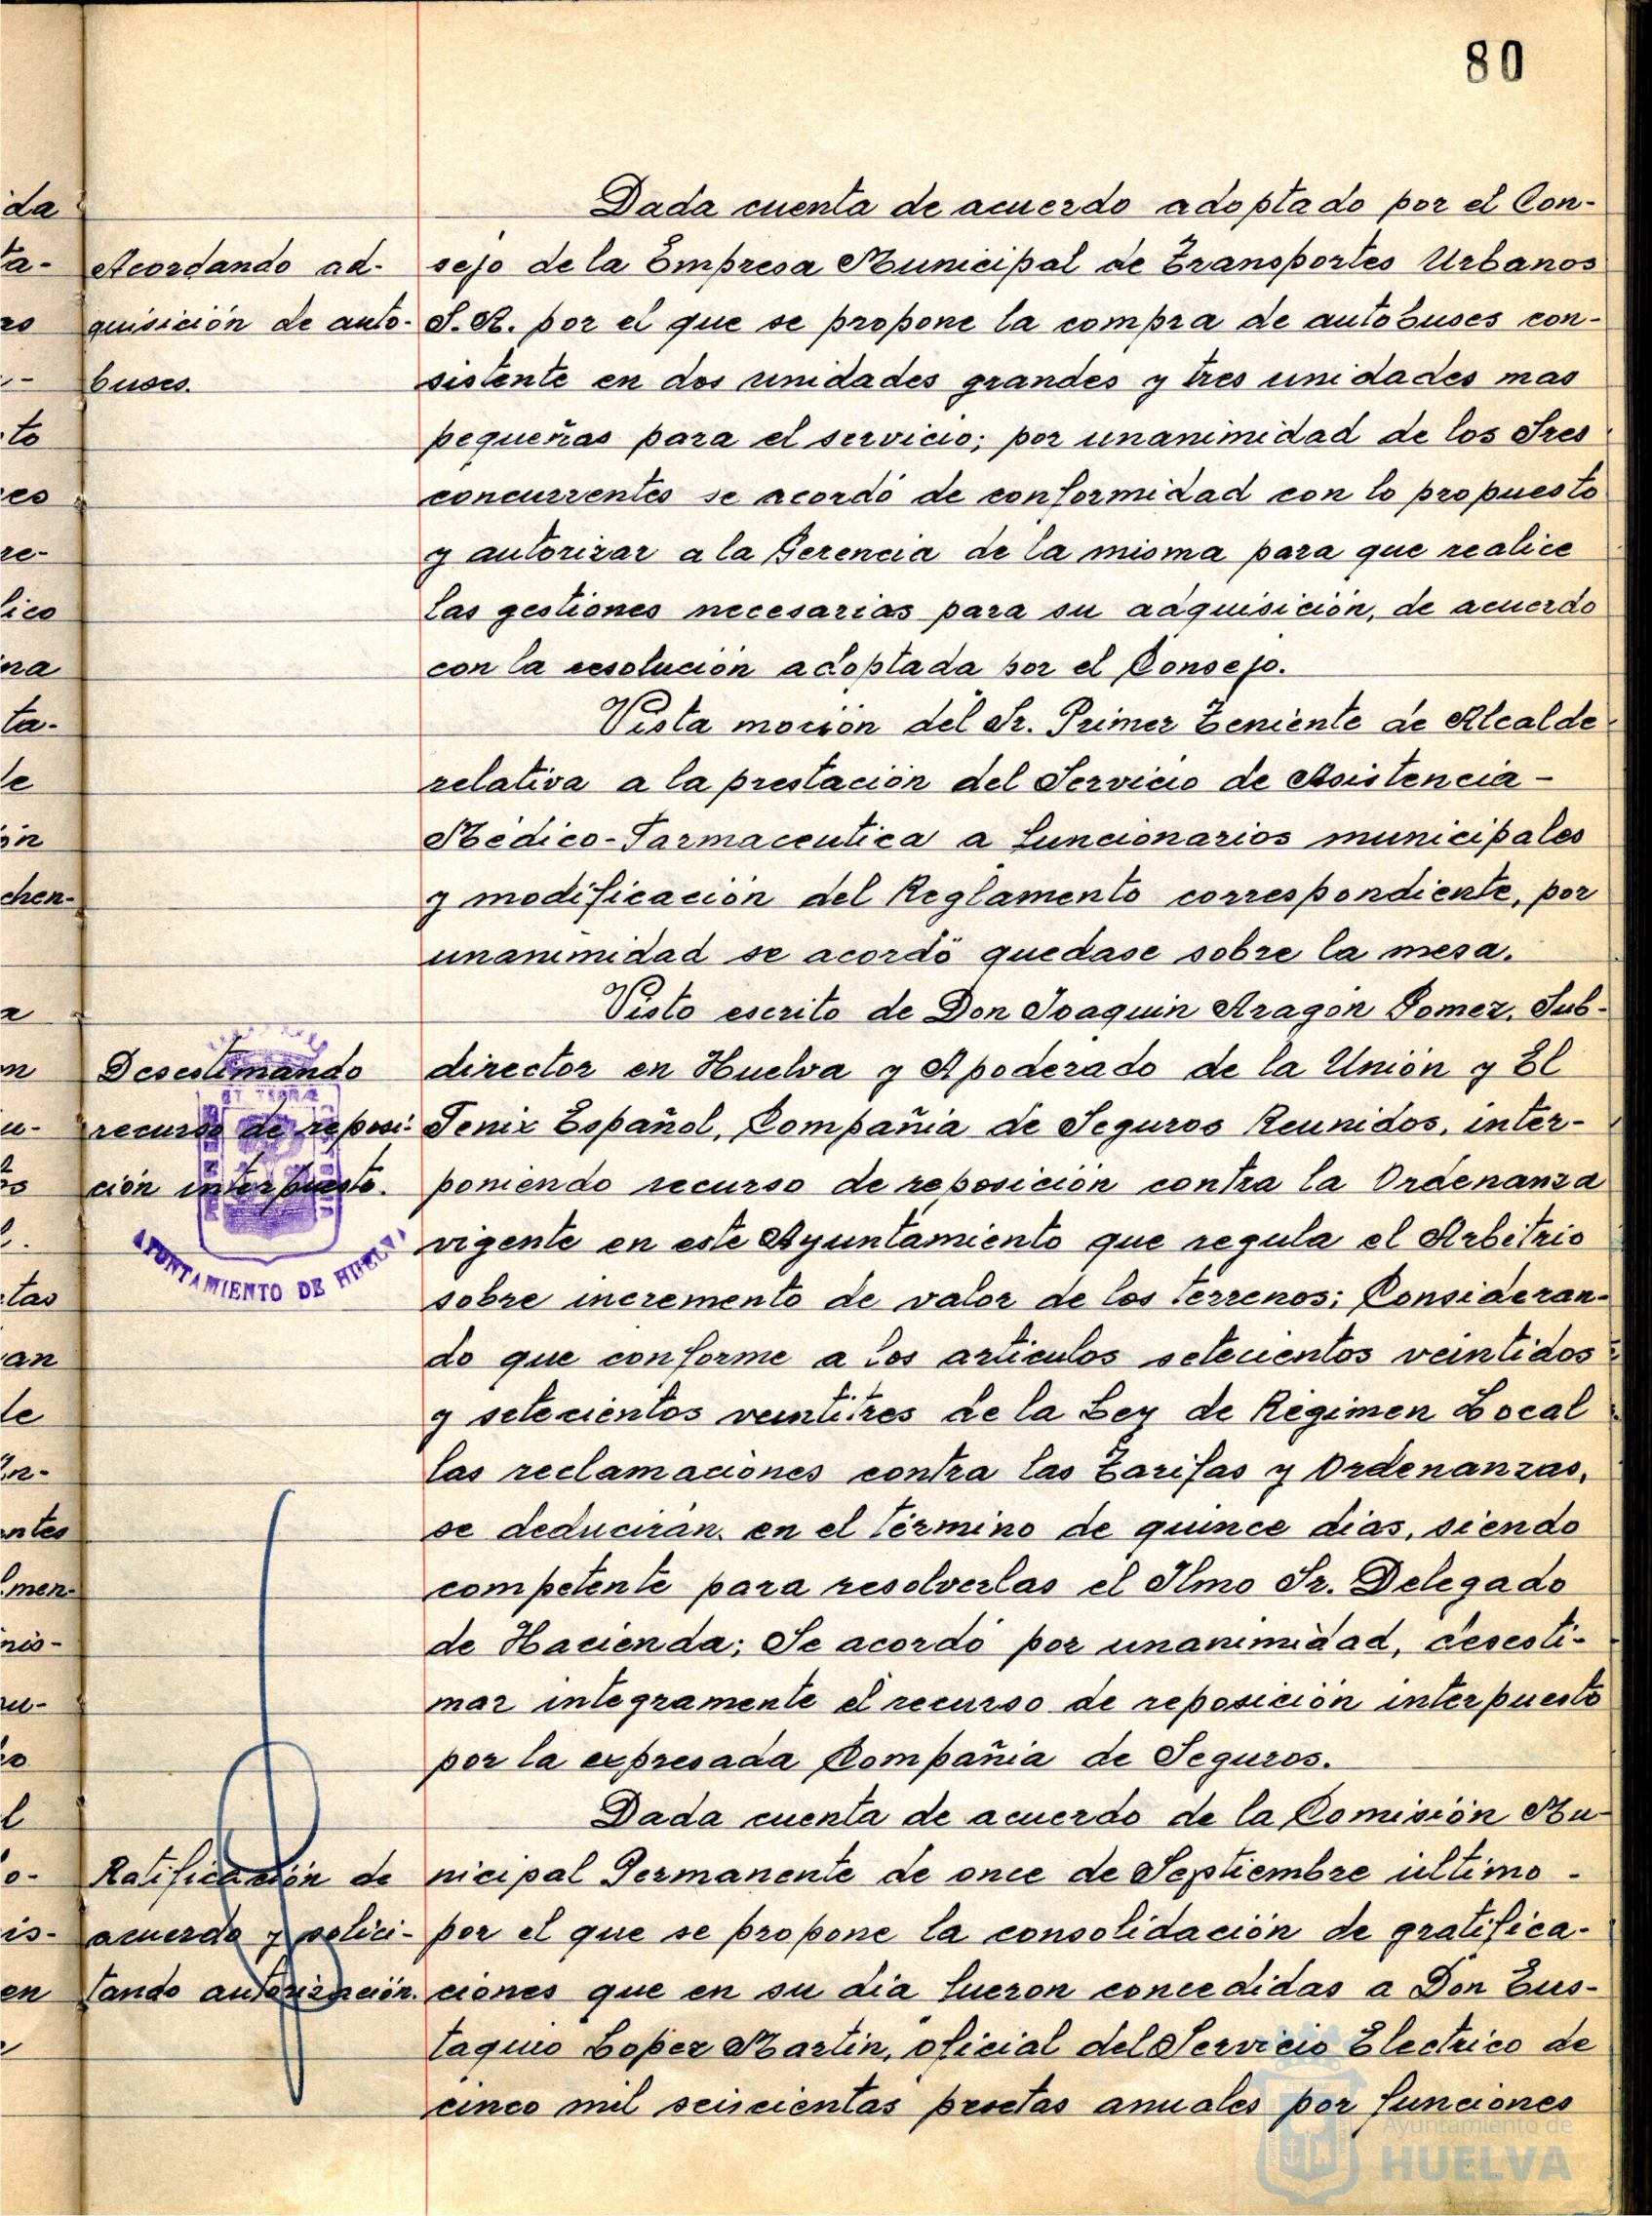 80
Dada cuenta de acuerdo adoptado por el Con-
Acordando ad-
sejo de la Empresa Municipal de Transportes Urbanos
quisición de auto-
S.A. por el que se propone la compra de autobuses con-
buses.
sistente en dos unidades grandes y tres unidades mas
pequeñas para el servicio; por unanimidad de los Sres
concurrentes se acordó de conformidad con lo propuesto
y autorizar a la Gerencia de la misma para que realice
las gestiones necesarias para su adquisición, de acuerdo
con la resolución adoptada por el Consejo.
Vista moción del Sr. Primer Teniente de Alcalde
relativa a la prestación del Servicio de Asistencia-
Médico-Farmaceutica a funcionarios municipales
y modificación del Reglamento correspondiente, por
unanimidad se acordó quedase sobre la mesa.
Visto escrito de Don Joaquin Aragón Gomez, Sub-
Desestimando
director en Huelva y Apoderado de la Unión y El
recurso de reposi-
Fenix Español, Compañia de Seguros Reunidos, inter-
ción interpuesto.
poniendo recurso de reposición contra la Ordenanza
vigente en este Ayuntamiento que regula el Arbitrio
AYUNTAMIENTO DE HUELVA
sobre incremento de valor de los terrenos; Consideran-
do que conforme a los articulos setecientos veintidos
y setecientos veintitres de la Ley de Régimen Local
las reclamaciones contra las Tarifas y Ordenanzas,
se deducirán en el término de quince dias, siendo
competente para resolverlas el Ilmo Sr. Delegado
de Hacienda; Se acordó por unanimidad, desesti-
mar integramente el recurso de reposición interpuesto
por la expresada Compañia de Seguros.
Dada cuenta de acuerdo de la Comisión Mu-
Ratificación de
nicipal Permanente de once de Septiembre último -
acuerdo y solici-
por el que se propone la consolidación de gratifica-
tando autorización.
ciones que en su dia fueron concedidas a Don Eus-
taquio Lopez Martin, oficial del Servicio Electrico de
cinco mil seiscientas pesetas anuales por funciones
Ayuntamiento de
HUELVA